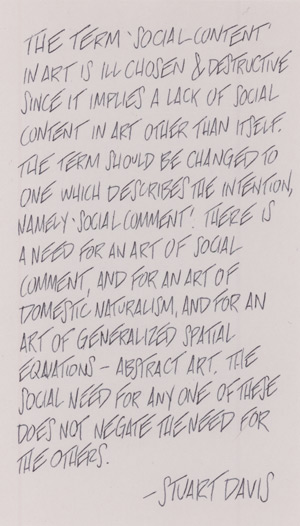 THE TERM 'SOCIAL CONTENT'
IN ART IS ILL CHOSEN & DESTRUCTIVE
SINCE IT IMPLIES A LACK OF SOCIAL
CONTENT IN ART OTHER THAN ITSELF.
THE TERM SHOULD BE CHANGED TO
ONE WHICH DESCRIBES THE INTENTION,
NAMELY 'SOCIAL COMMENT'. THERE IS
A NEED FOR AN ART OF SOCIAL
COMMENT, AND FOR AN ART OF
DOMESTIC NATURALISM, AND FOR AN
ART OF GENERALIZED SPATIAL
EQAVATIONS – ABSTRACT ART. THE
SOCIAL NEED FOR ANY ONE OF THESE
DOES NOT NEGATE THE NEED FOR
THE OTHERS.
– STUART DAVIS